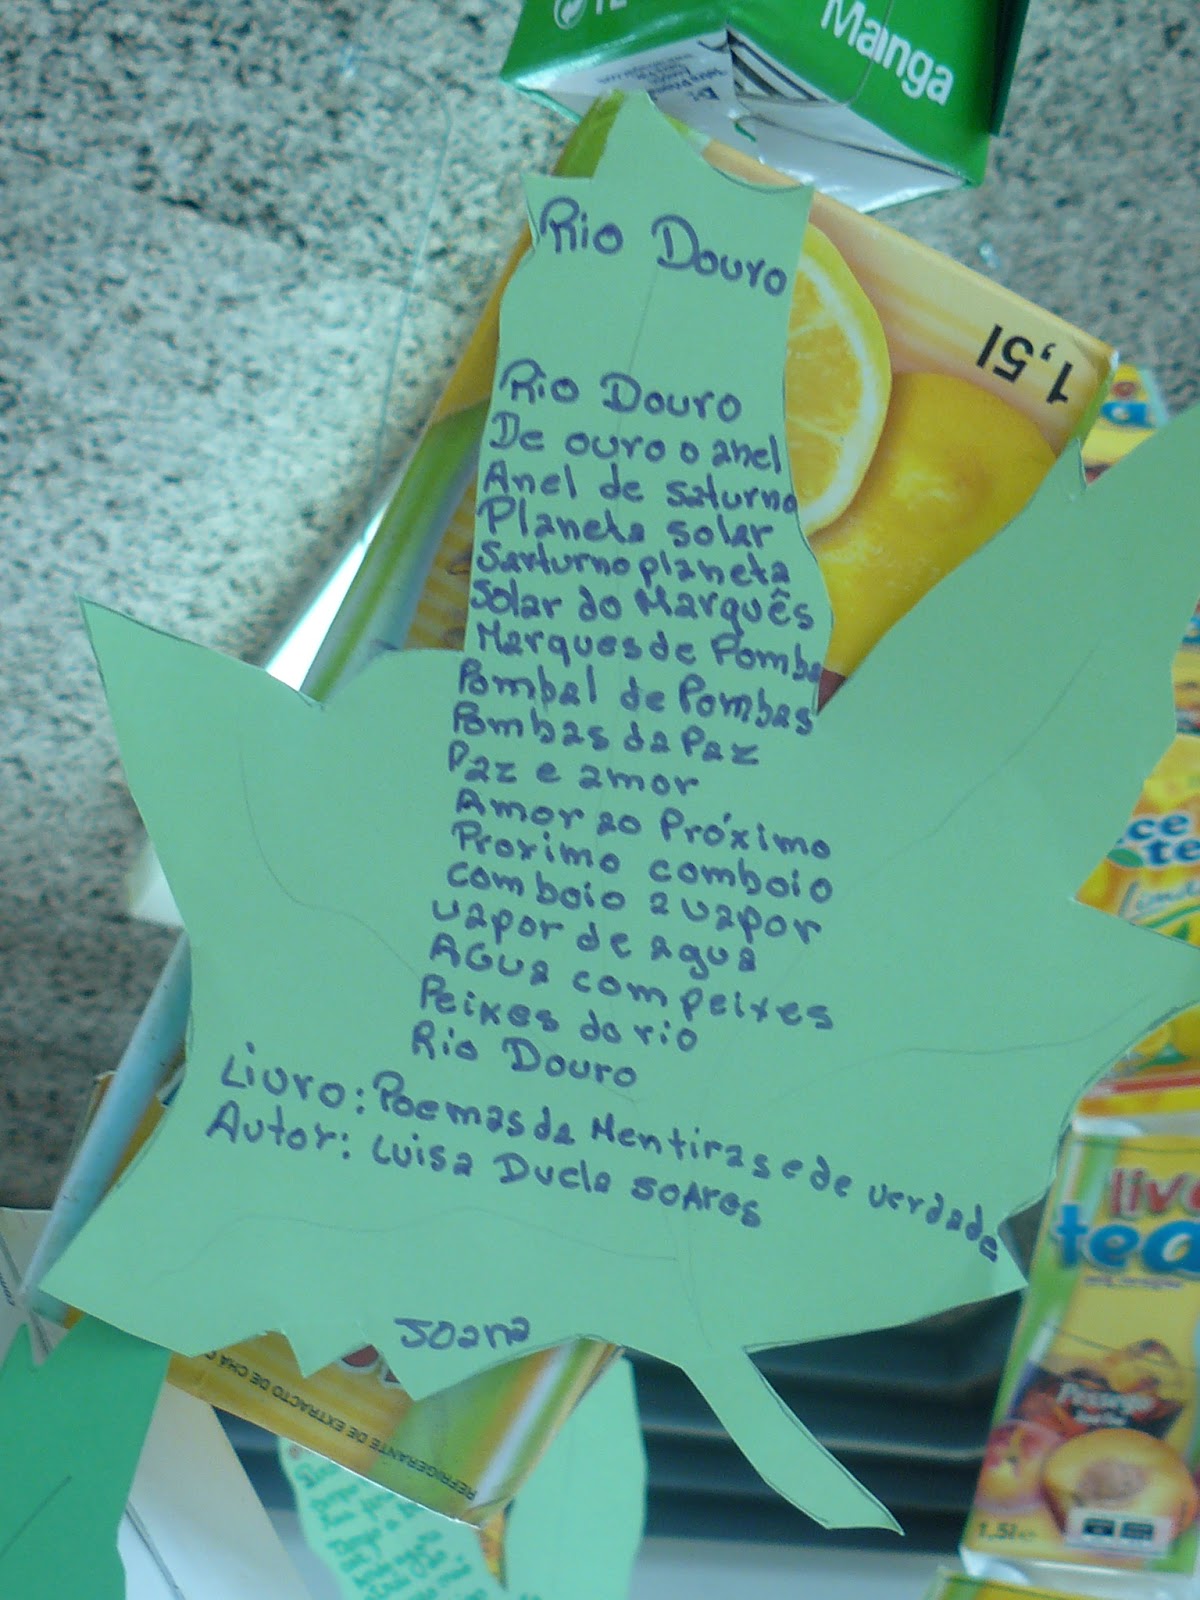 Manga
Rio Douro
1,5l
Rio Douro
De ouro o anel
Anel de saturno
Planeta solar
Saturno planeta
Solar do Marquês
Marques de Pomba
Pombal de Pombas
Pombas da Paz
Paz e amor
Amor ao Próximo
Proximo comboio
comboio a vapor
vapor de agua
AGUA com peixes
Peixes do rio
Rio Douro
Livro: Poemas da Mentiras e de verdade
Autor: Luisa Ducla soAres
Joana
ce
te
liv
tea
Pessego
1,5l
REFRIGERANTE DE EXTRACTO DE CHÁ